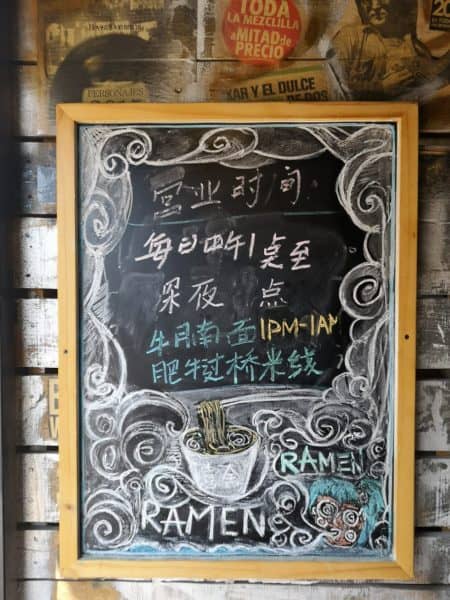 TODA
LA MEZCLILLA
a MITAD de
PRECIO
20
PERSONAJES
XAR Y EL DULCE
DE DOS
营业时间
每日中午1点至
深夜 点
牛月南面1PM-1AM
肥牛过桥米线
RAMEN
RAMEN